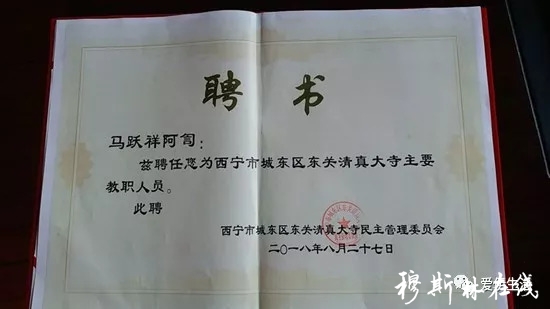 聘 书
马跃祥阿訇：
兹聘任您为西宁市城东区东关清真大寺主要
教职人员。
此聘
西宁市城东区东关清真大寺民主管理委员会
二〇一八年八月二十七日
穆斯林在线